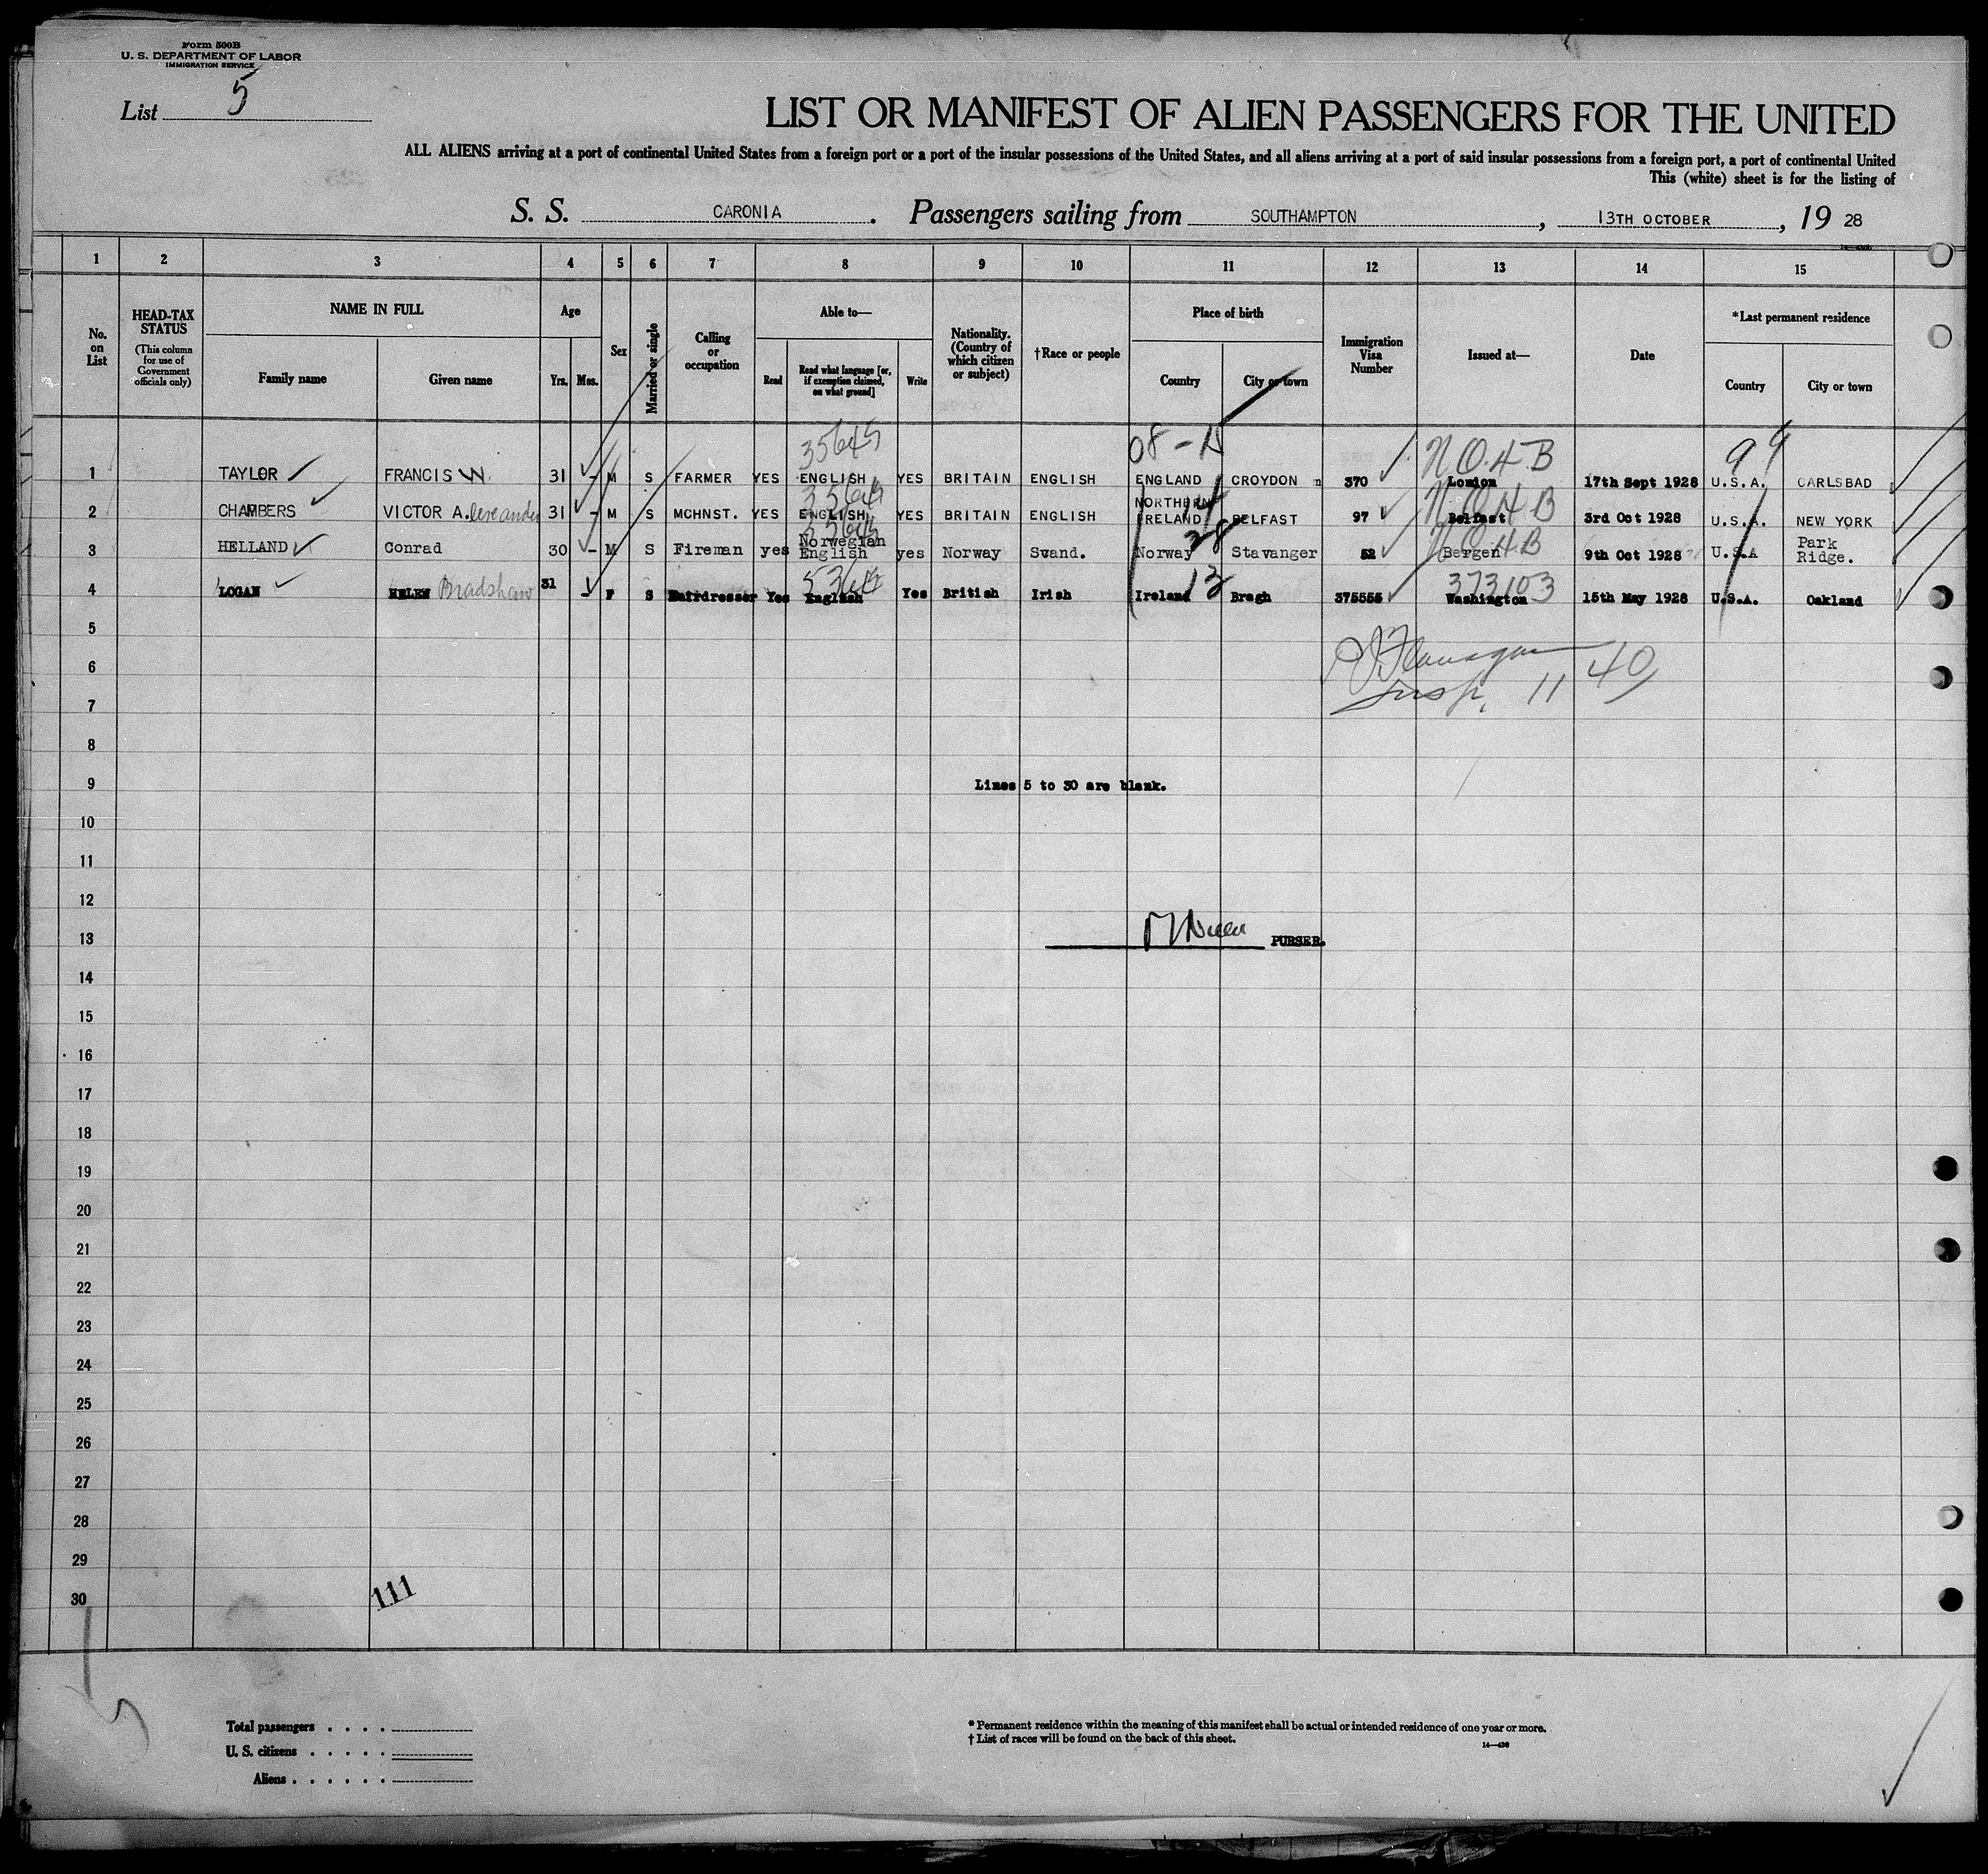 Form 500B
U. S. DEPARTMENT OF LABOR
IMMIGRATION SERVICE
List 5
LIST OR MANIFEST OF ALIEN PASSENGERS FOR THE UNITED
ALL ALIENS arriving at a port of continental United States from a foreign port or a port of the insular possessions of the United States, and all aliens arriving at a port of said insular possessions from a foreign port, a port of continental United
This (white) sheet is for the listing of
S. S. CARONIA . Passengers sailing from SOUTHAMPTON , 13TH OCTOBER , 19 28
1 2 3 4 5 6 7 8 9 10 11 12 13 14 15
No. on List
HEAD-TAX STATUS
(This column for use of Government officials only)
NAME IN FULL
Family name
Given name
Age
Yrs. Mos.
Sex
Married or single
Calling or occupation
Able to—
Read
Read what language [or, if exemption claimed, on what ground]
Write
Nationality. (Country of which citizen or subject)
†Race or people
Place of birth
Country
City or town
Immigration Visa Number
Issued at—
Date
*Last permanent residence
Country
City or town
35645 08-15 N.O.4B 99
1 TAYLOR FRANCIS W. 31 - M S FARMER YES ENGLISH YES BRITAIN ENGLISH ENGLAND CROYDON 370 London 17th Sept 1928 U.S.A. CARLSBAD
N.O.4B
2 CHAMBERS VICTOR A.lexander 31 - M S MCHNST. YES ENGLISH YES BRITAIN ENGLISH NORTHERN IRELAND BELFAST 97 Belfast 3rd Oct 1928 U.S.A. NEW YORK
28 N.O.4B
3 HELLAND Conrad 30 - M S Fireman yes Norwegian English yes Norway Scand. Norway Stavanger 52 Bergen 9th Oct 1928 U.S.A Park Ridge.
13 373103
4 LOGAN HELEN Bradshaw 31 - F S Hairdresser Yes English Yes British Irish Ireland Bragh 375555 Washington 15th May 1928 U.S.A. Oakland
5
6 Flanagan
7 Insp. 11 40
8
9 Lines 5 to 30 are blank.
10
11
12
13 PURSER.
14
15
16
17
18
19
20
21
22
23
24
25
26
27
28
29
30
111
Total passengers . . . .
U. S. citizens . . . . .
Aliens . . . . . .
* Permanent residence within the meaning of this manifest shall be actual or intended residence of one year or more.
† List of races will be found on the back of this sheet.
14—430